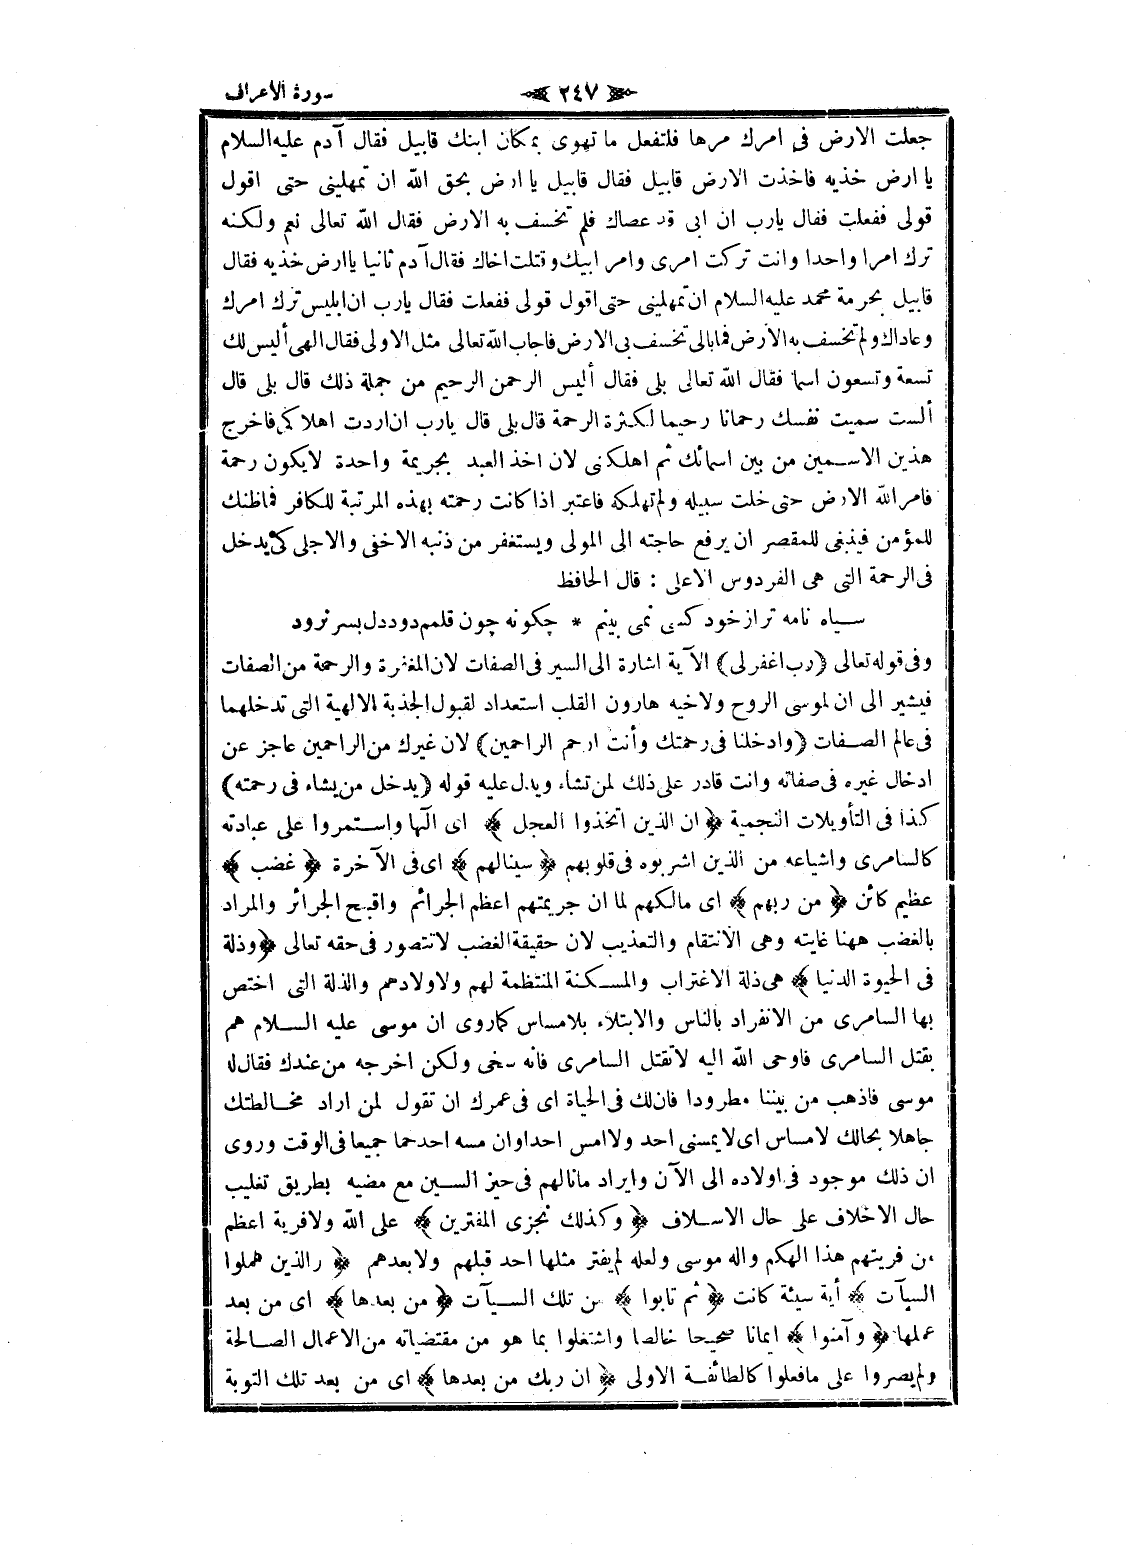 سورة الأعراف ٢٤٧
جعلت الارض فى امرك مرها فلتفعل ما تهوى بمكان ابنك قابيل فقال آدم عليه السلام
يا ارض خذيه فاخذت الارض قابيل فقال قابيل يا ارض بحق الله ان تمهلينى حتى اقول
قولى ففعلت فقال يارب ان ابى قد عصاك فلم تخسف به الارض فقال الله تعالى نعم ولكنه
ترك امرا واحدا وانت تركت امرى وامر ابيك وقتلت اخاك فقال آدم ثانيا ياارض خذيه فقال
قابيل بحرمة محمد عليه السلام ان تمهلينى حتى اقول قولى ففعلت فقال يارب ان ابليس ترك امرك
وعاداك ولم تخسف به الارض فمابالى تخسف بى الارض فاجاب الله تعالى مثل الاولى فقال الهى أليس لك
تسعة وتسعون اسما فقال الله تعالى بلى فقال أليس الرحمن الرحيم من جملة ذلك قال بلى قال
ألست سميت نفسك رحمانا رحيما لكثرة الرحمة قال بلى قال يارب ان اردت اهلاكى فاخرج
هذين الاسمين من بين اسمائك ثم اهلكنى لان اخذ العبد بجريمة واحدة لايكون رحمة
فامر الله الارض حتى خلت سبيله ولم تهلكه فاعتبر اذا كانت رحمته بهذه المرتبة للكافر فماظنك
للمؤمن فينبغى للمقصر ان يرفع حاجته الى المولى ويستغفر من ذنبه الاخفى والاجلى كى يدخل
فى الرحمة التى هى الفردوس الاعلى : قال الحافظ
سياه نامه تر از خود كسى نمى بينم * چكونه چون قلمم دود دل بسر نرود
وفى قوله تعالى (رب اغفر لى) الآية اشارة الى السير فى الصفات لان المغفرة والرحمة من الصفات
فيشير الى ان لموسى الروح ولاخيه هارون القلب استعداد لقبول الجذبة الالهية التى تدخلهما
فى عالم الصفات (وادخلنا فى رحمتك وأنت ارحم الراحمين) لان غيرك من الراحمين عاجز عن
ادخال غيره فى صفاته وانت قادر على ذلك لمن تشاء ويدل عليه قوله (يدخل من يشاء فى رحمته)
كذا فى التأويلات النجمية ﴿ ان الذين اتخذوا العجل ﴾ اى الها واستمروا على عبادته
كالسامرى واشياعه من الذين اشربوه فى قلوبهم ﴿ سينالهم ﴾ اى فى الآخرة ﴿ غضب ﴾
عظيم كائن ﴿ من ربهم ﴾ اى مالكهم لما ان جريمتهم اعظم الجرائم واقبح الجرائر والمراد
بالغضب ههنا غايته وهى الانتقام والتعذيب لان حقيقة الغضب لاتتصور فى حقه تعالى ﴿ وذلة
فى الحيوة الدنيا ﴾ هى ذلة الاغتراب والمسكنة المنتظمة لهم ولاولادهم والذلة التى اختص
بها السامرى من الانفراد بالناس والابتلاء بلامساس كماروى ان موسى عليه السلام هم
بقتل السامرى فاوحى الله اليه لاتقتل السامرى فانه سخى ولكن اخرجه من عندك فقال له
موسى فاذهب من بيننا مطرودا فان لك فى الحياة اى فى عمرك ان تقول لمن اراد مخالطتك
جاهلا بحالك لامساس اى لايمسنى احد ولاامس احدا وان مسه احد حما جميعا فى الوقت وروى
ان ذلك موجود فى اولاده الى الآن وايراد مانالهم فى حيز السين مع مضيه بطريق تغليب
حال الاخلاف على حال الاسلاف ﴿ وكذلك نجزى المفترين ﴾ على الله ولافرية اعظم
من فريتهم هذا الهكم واله موسى ولعله لم يفتر مثلها احد قبلهم ولا بعدهم ﴿ والذين عملوا
السيآت ﴾ أية سيئة كانت ﴿ ثم تابوا ﴾ من تلك السيآت ﴿ من بعدها ﴾ اى من بعد
عملها ﴿ وآمنوا ﴾ ايمانا صحيحا خالصا واشتغلوا بما هو من مقتضياته من الاعمال الصالحة
ولم يصروا على مافعلوا كالطائفة الاولى ﴿ ان ربك من بعدها ﴾ اى من بعد تلك التوبة